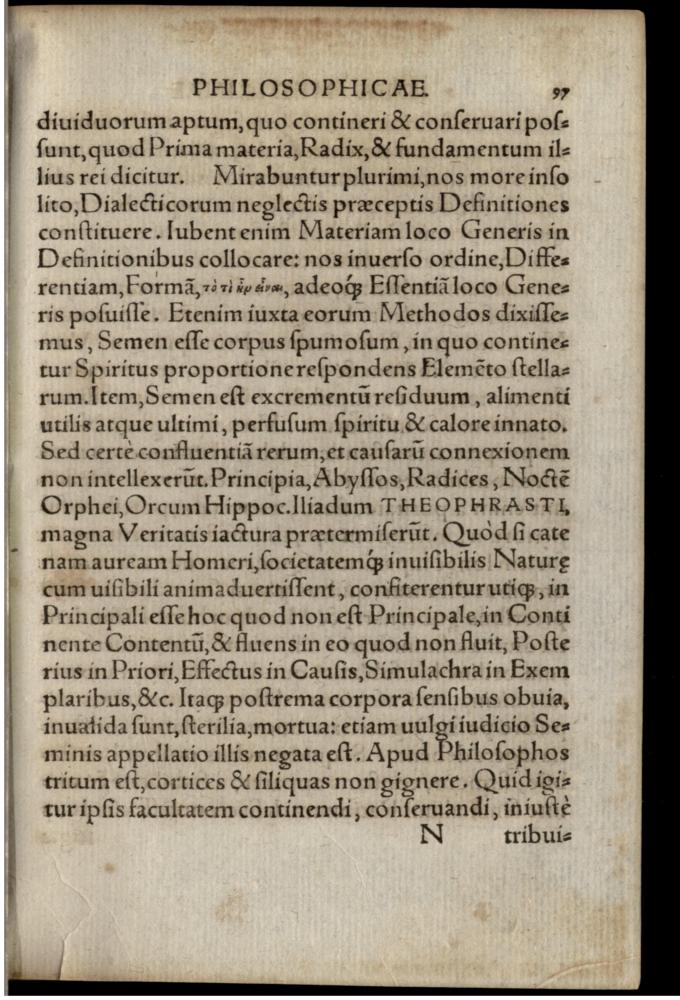 PHILOSOPHICAE. 97
diuiduorum aptum, quo contineri & conſeruari poſ⸗
ſunt, quod Prima materia, Radix, & fundamentum il⸗
lius rei dicitur. Mirabuntur plurimi, nos more inſo
lito, Dialecticorum neglectis præceptis Definitiones
conſtituere. Iubent enim Materiam loco Generis in
Definitionibus collocare: nos inuerſo ordine, Diffe⸗
rentiam, Formã, τὸ τὶ ἦν εἶναι, adeoq́ꝫ Eſſentiã loco Gene⸗
ris poſuiſſe. Etenim iuxta eorum Methodos dixiſſe⸗
mus, Semen eſſe corpus ſpumoſum, in quo contine⸗
tur Spiritus proportione reſpondens Elemẽto ſtella⸗
rum. Item, Semen eſt excrementũ reſiduum, alimenti
utilis atque ultimi, perfuſum ſpiritu & calore innato.
Sed certè confluentiã rerum, et cauſarũ connexionem
non intellexerũt. Principia, Abyſſos, Radices, Noctẽ
Orphei, Orcum Hippoc. Iliadum THEOPHRASTI,
magna Veritatis iactura prætermiſerũt. Quòd ſi cate
nam auream Homeri, ſocietatemq́ꝫ inuiſibilis Naturę
cum uiſibili animaduertiſſent, confiterentur utiqꝫ, in
Principali eſſe hoc quod non eſt Principale, in Conti
nente Contentũ, & fluens in eo quod non fluit, Poſte
rius in Priori, Effectus in Cauſis, Simulachra in Exem
plaribus, &c. Itaqꝫ poſtrema corpora ſenſibus obuia,
inualida ſunt, ſterilia, mortua: etiam uulgi iudicio Se⸗
minis appellatio illis negata eſt. Apud Philoſophos
tritum eſt, cortices & ſiliquas non gignere. Quid igi⸗
tur ipſis facultatem continendi, conſeruandi, iniuſtè
N tribui⸗